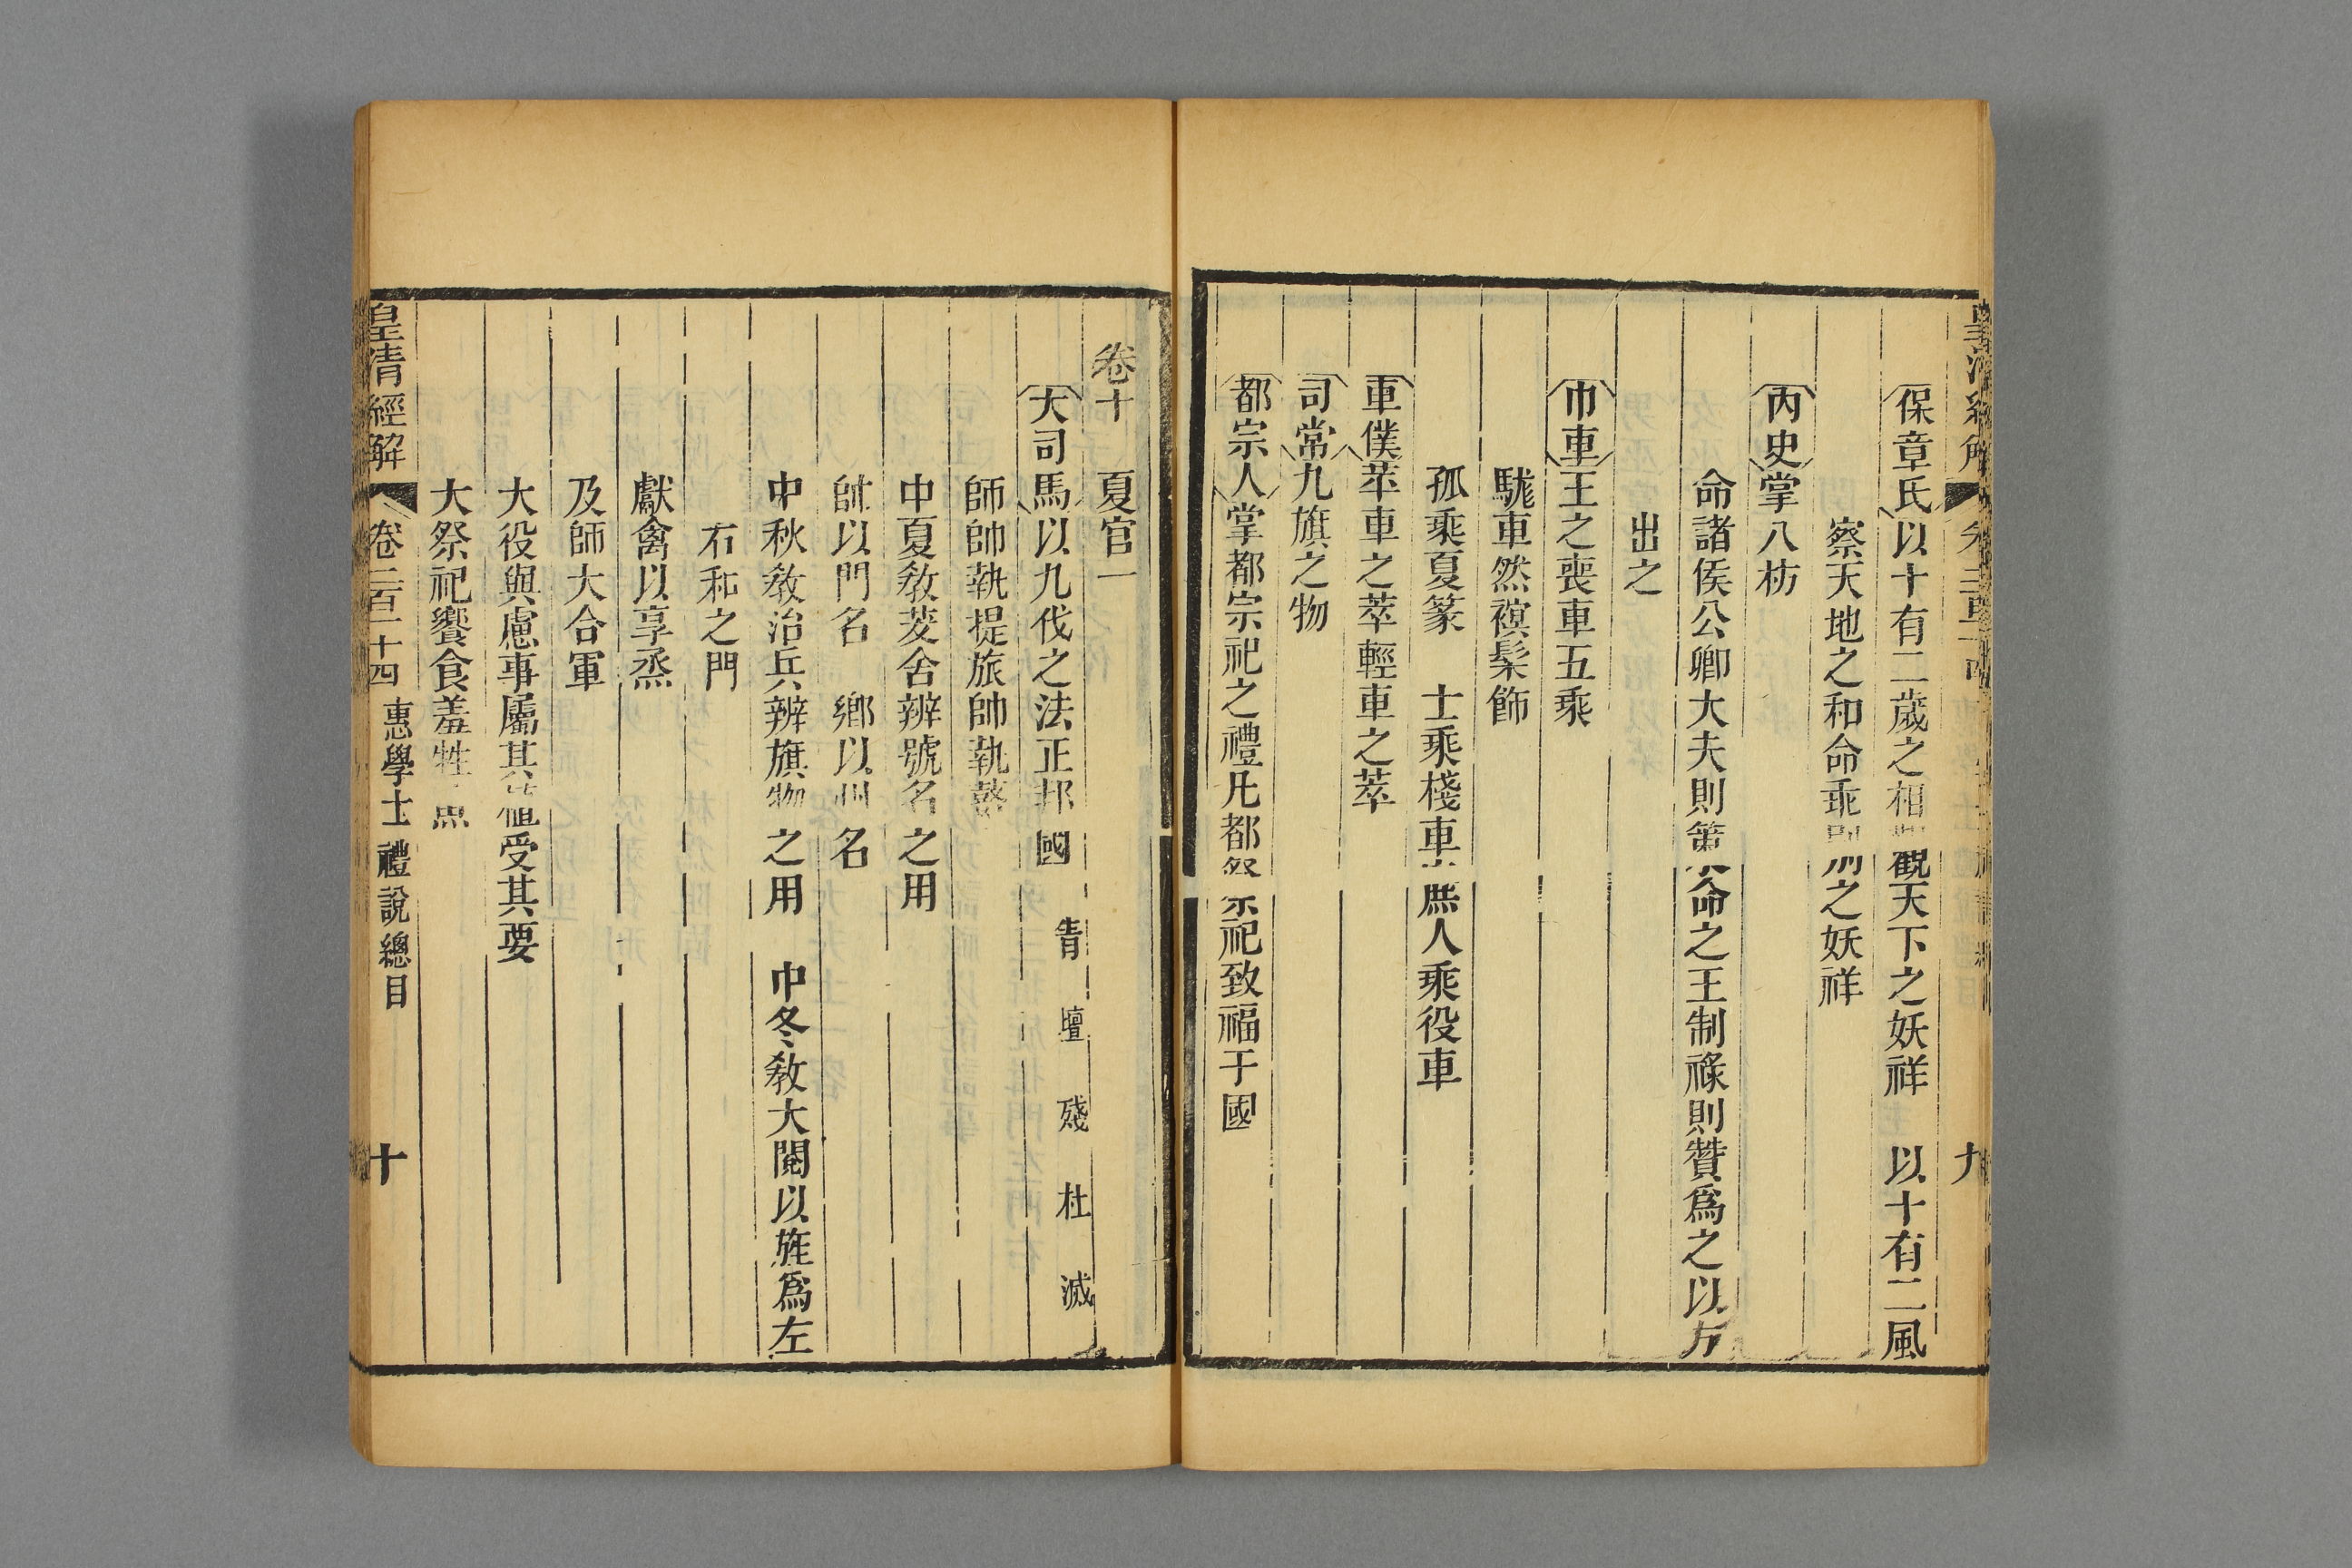 保章氏以十有二歲之相觀天下之妖祥　以十有二風
察天地之和命乖別之妖祥
內史掌八枋
命諸侯公卿大夫則策命之王制祿則贊爲之以方
出之
巾車王之喪車五乘
駹車然𧜀髹飾
孤乘夏篆　士乘棧車庶人乘役車
車僕苹車之萃輕車之萃
司常九旗之物
都宗人掌都宗祀之禮凡都祭祀致福于國
九
卷十　夏官一
大司馬以九伐之法正邦國　眚　壇　殘　杜　滅
師帥執提旅帥執鼙
中夏敎茇舍辨號名之用
帥以門名　鄉以州名
中秋敎治兵辨旗物之用　中冬敎大閱以旌爲左
右和之門
獻禽以享烝
及師大合軍
大役與慮事屬其植受其要
大祭祀饗食羞牲魚
皇清經解　卷二百二十四　惠學士禮說總目　十